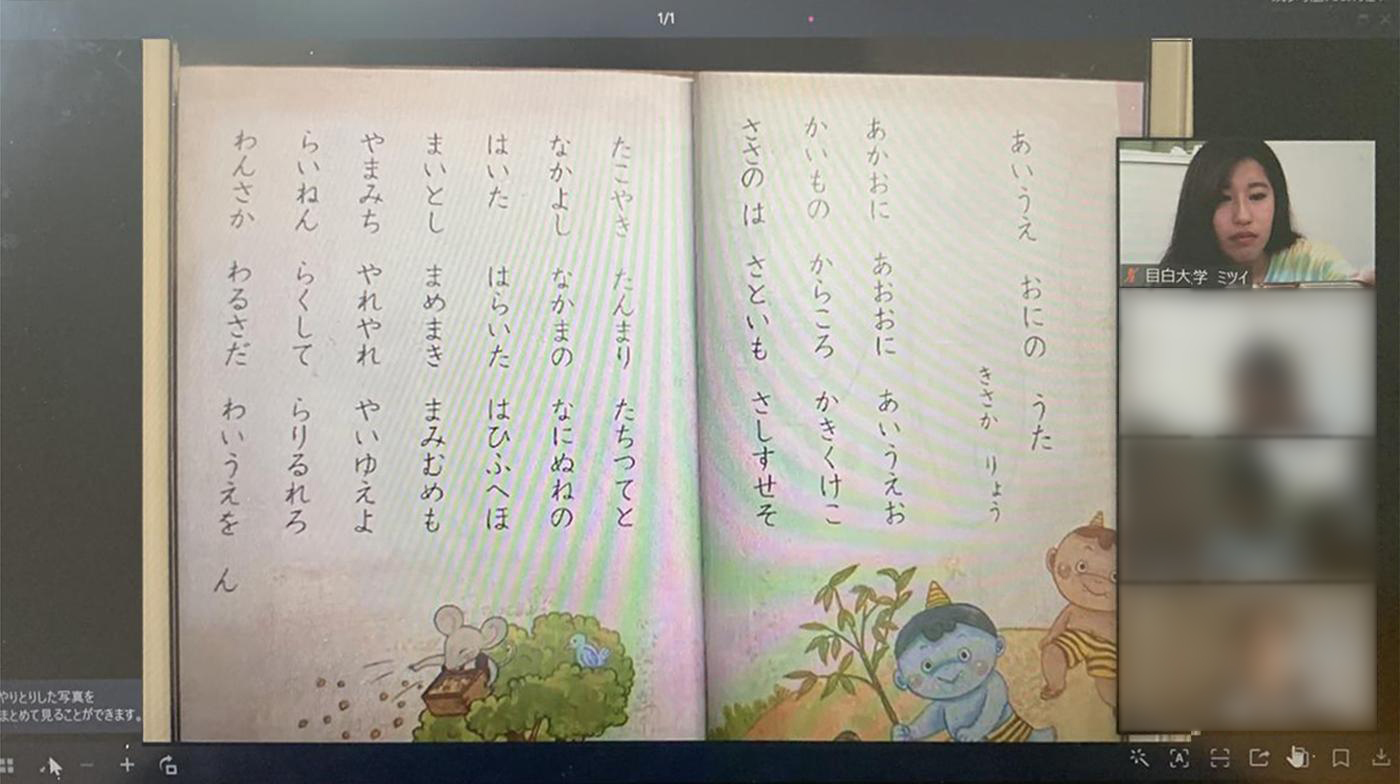 1/1
あいうえ おにの うた
きさか りょう
あかおに あおおに あいうえお
かいもの からころ かきくけこ
ささの は さといも さしすせそ
たこやき たんまり たちつてと
なかよし なかまの なにぬねの
はいた はらいた はひふへほ
まいとし まめまき まみむめも
やまみち やれやれ やいゆえよ
らいねん らくして らりるれろ
わんさか わるさだ わいうえを ん
目白大学 ミツイ
やりとりした写真を
まとめて見ることができます。